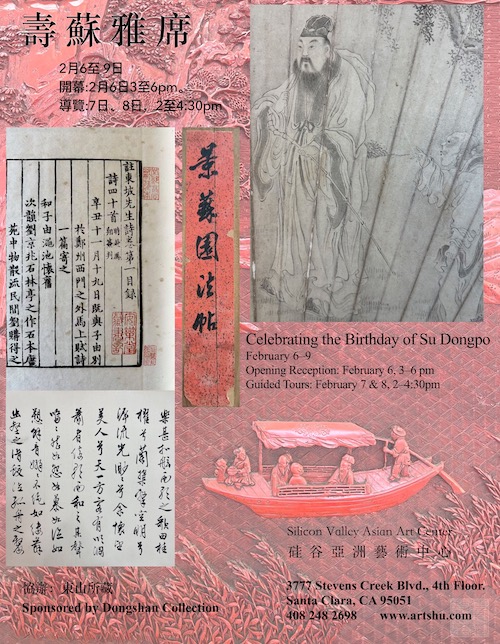 壽蘇雅席
2月6至 9日
開幕:2月6日3至6pm、
導覽:7日、8日，2至4:30pm
註東坡先生詩卷第一目錄
詩四十首
辛丑十一月十九日既與子由別
於鄭州西門之外馬上賦詩
一篇寄之
和子由澠池懷舊
次韻劉京兆石林亭之作石本唐
苑中物散流民間劉購得之
景蘇園法帖
Celebrating the Birthday of Su Dongpo
February 6–9
Opening Reception: February 6, 3–6 pm
Guided Tours: February 7 & 8, 2–4:30pm
樂甚扣舷而歌之歌曰桂
櫂兮蘭槳擊空明兮
泝流光渺渺兮余懷望
美人兮天一方客有吹洞
簫者倚歌而和之其聲
嗚嗚然如怨如慕如泣如
訴餘音嫋嫋不絕如縷舞
幽壑之潛蛟泣孤舟之嫠
Silicon Valley Asian Art Center
硅谷亞洲藝術中心
東山所藏
Sponsored by Dongshan Collection
3777 Stevens Creek Blvd., 4th Floor.
Santa Clara, CA 95051
408 248 2698 www.artshu.com